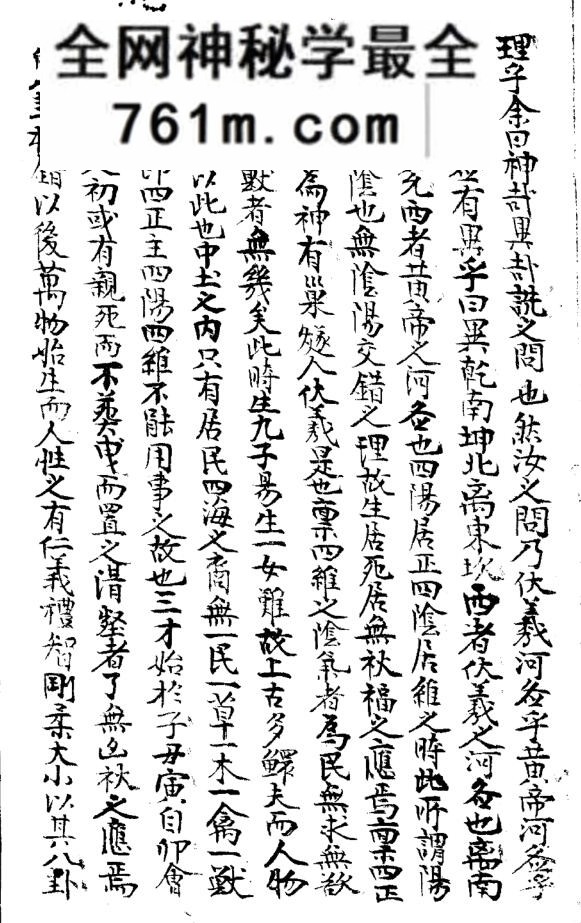 全网神秘学最全
761m.com
理乎余曰神哉異卦說之問也然汝之問乃伏羲河啚乎黃帝河啚乎
有異乎曰異乾南坤北离東坎西者伏羲之河啚也离南
西者黃帝之河啚也四陽居正四陰居維之時此所謂陽
陰也無陰陽交錯之理故生居死居無秋福之應焉稟四正
為神有巢燧人伏羲是也稟四維之陰氣者為民無求無欲
獸者無幾矣此時生九子易生一女難故上古多鰥夫而人物
以此也中土之内只有居民四海之裔無一民一草一木一禽一獸
四正主四陽四維不能用事之故也三才始於子丑寅自卯會
初或有親死而不葬曳而置之溝壑者了無凶秋之應焉
錯以後萬物始生而人性之有仁義禮智剛柔大小以其八卦